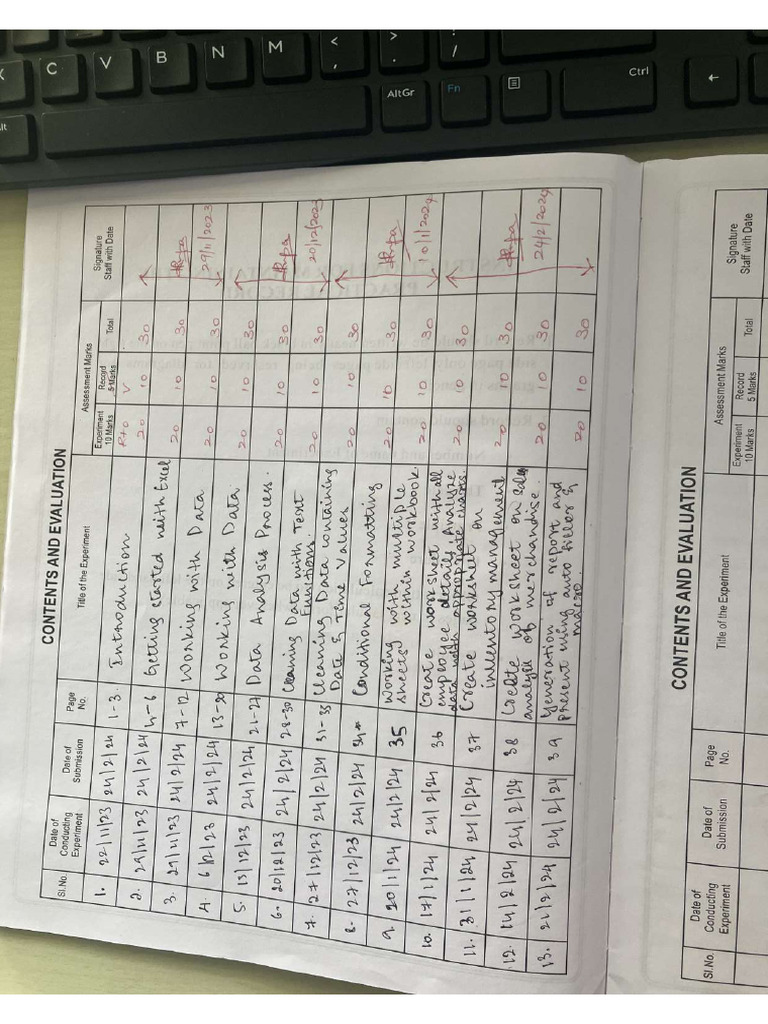 CONTENTS AND EVALUATION
Sl.No. Date of Conducting Experiment Date of Submission Page No. Title of the Experiment Assessment Marks Signature Staff with Date
Experiment 10 Marks Record 5 Marks Total
R+O V
1. 22/11/23 24/2/24 1-3. Introduction 20 10 30
2. 29/11/23 24/2/24 4-6 Getting started with Excel 20 10 30
3. 29/11/23 24/2/24 7-12 Working with Data 20 10 30 29/11/2023
4. 6/12/23 24/2/24 13-20 Working with Data 20 10 30
5. 13/12/23 24/2/24 21-27 Data Analysis Process. 20 10 30
6. 20/12/23 24/2/24 28-30 Cleaning Data with Text Functions. 20 10 30
7. 27/12/23 24/2/24 31-33 Cleaning Data containing Date & Time Values 20 10 30 20/12/2023
8. 27/12/23 24/2/24 34 Conditional Formatting 20 10 30
9. 20/1/24 24/2/24 35 Working with multiple sheets within workbook 20 10 30
10. 17/1/24 24/2/24 36 Create worksheet with all employee details, Analyze data with appropriate charts. 20 10 30 10/1/2024
11. 31/1/24 24/2/24 37 Create worksheet on inventory management 20 10 30
12. 14/2/24 24/2/24 38 Create worksheet on Sales analysis of merchandise. 20 10 30
13. 21/2/24 24/2/24 39 Generation of report and present using auto filter & macro. 20 10 30 24/2/2024
CONTENTS AND EVALUATION
Sl.No. Date of Conducting Experiment Date of Submission Page No. Title of the Experiment Assessment Marks Signature Staff with Date
Experiment 10 Marks Record 5 Marks Total
X C V B N M < , > . ? /
Alt AltGr Fn Ctrl ←